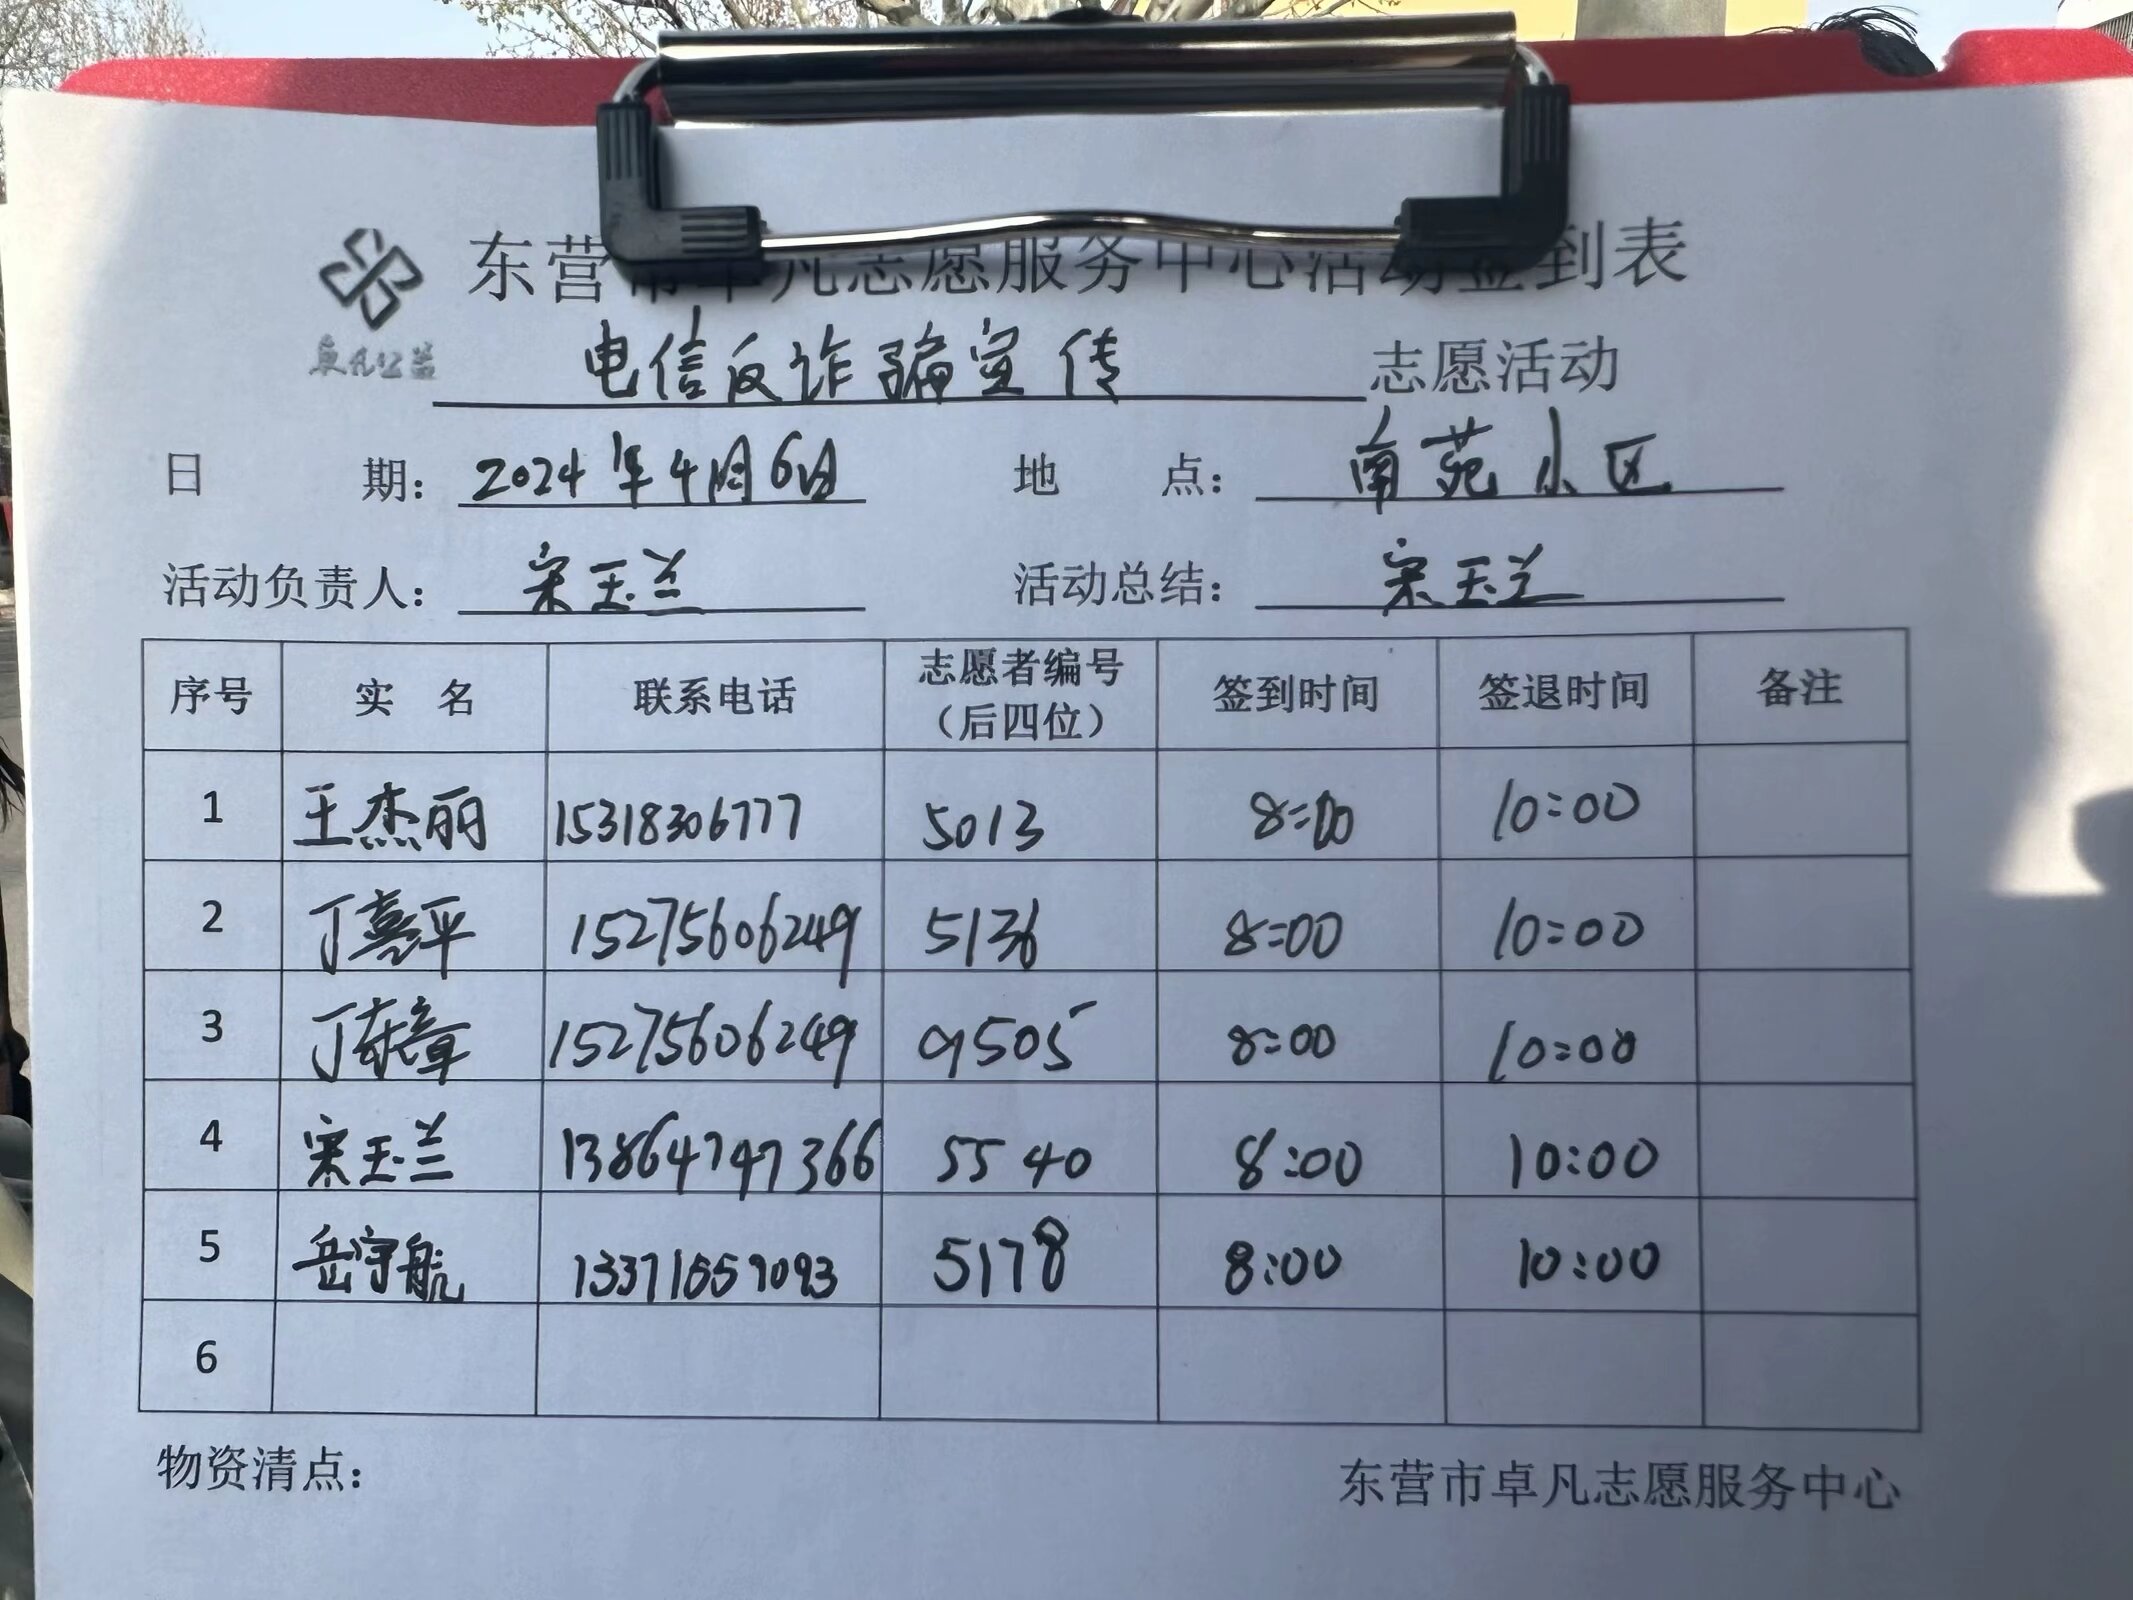 东营市卓凡志愿服务中心活动签到表
卓凡公益
电信反诈骗宣传 志愿活动
日 期： 2024年4月6日 地 点： 南苑小区
活动负责人： 宋玉兰 活动总结： 宋玉兰
序号 实 名 联系电话 志愿者编号（后四位） 签到时间 签退时间 备注
1 王杰丽 15318306777 5013 8:00 10:00
2 丁喜平 15275606249 5136 8:00 10:00
3 丁存章 15275606249 9505 8:00 10:00
4 宋玉兰 13864797366 5540 8:00 10:00
5 岳宇航 13371559093 5178 8:00 10:00
6
物资清点：
东营市卓凡志愿服务中心